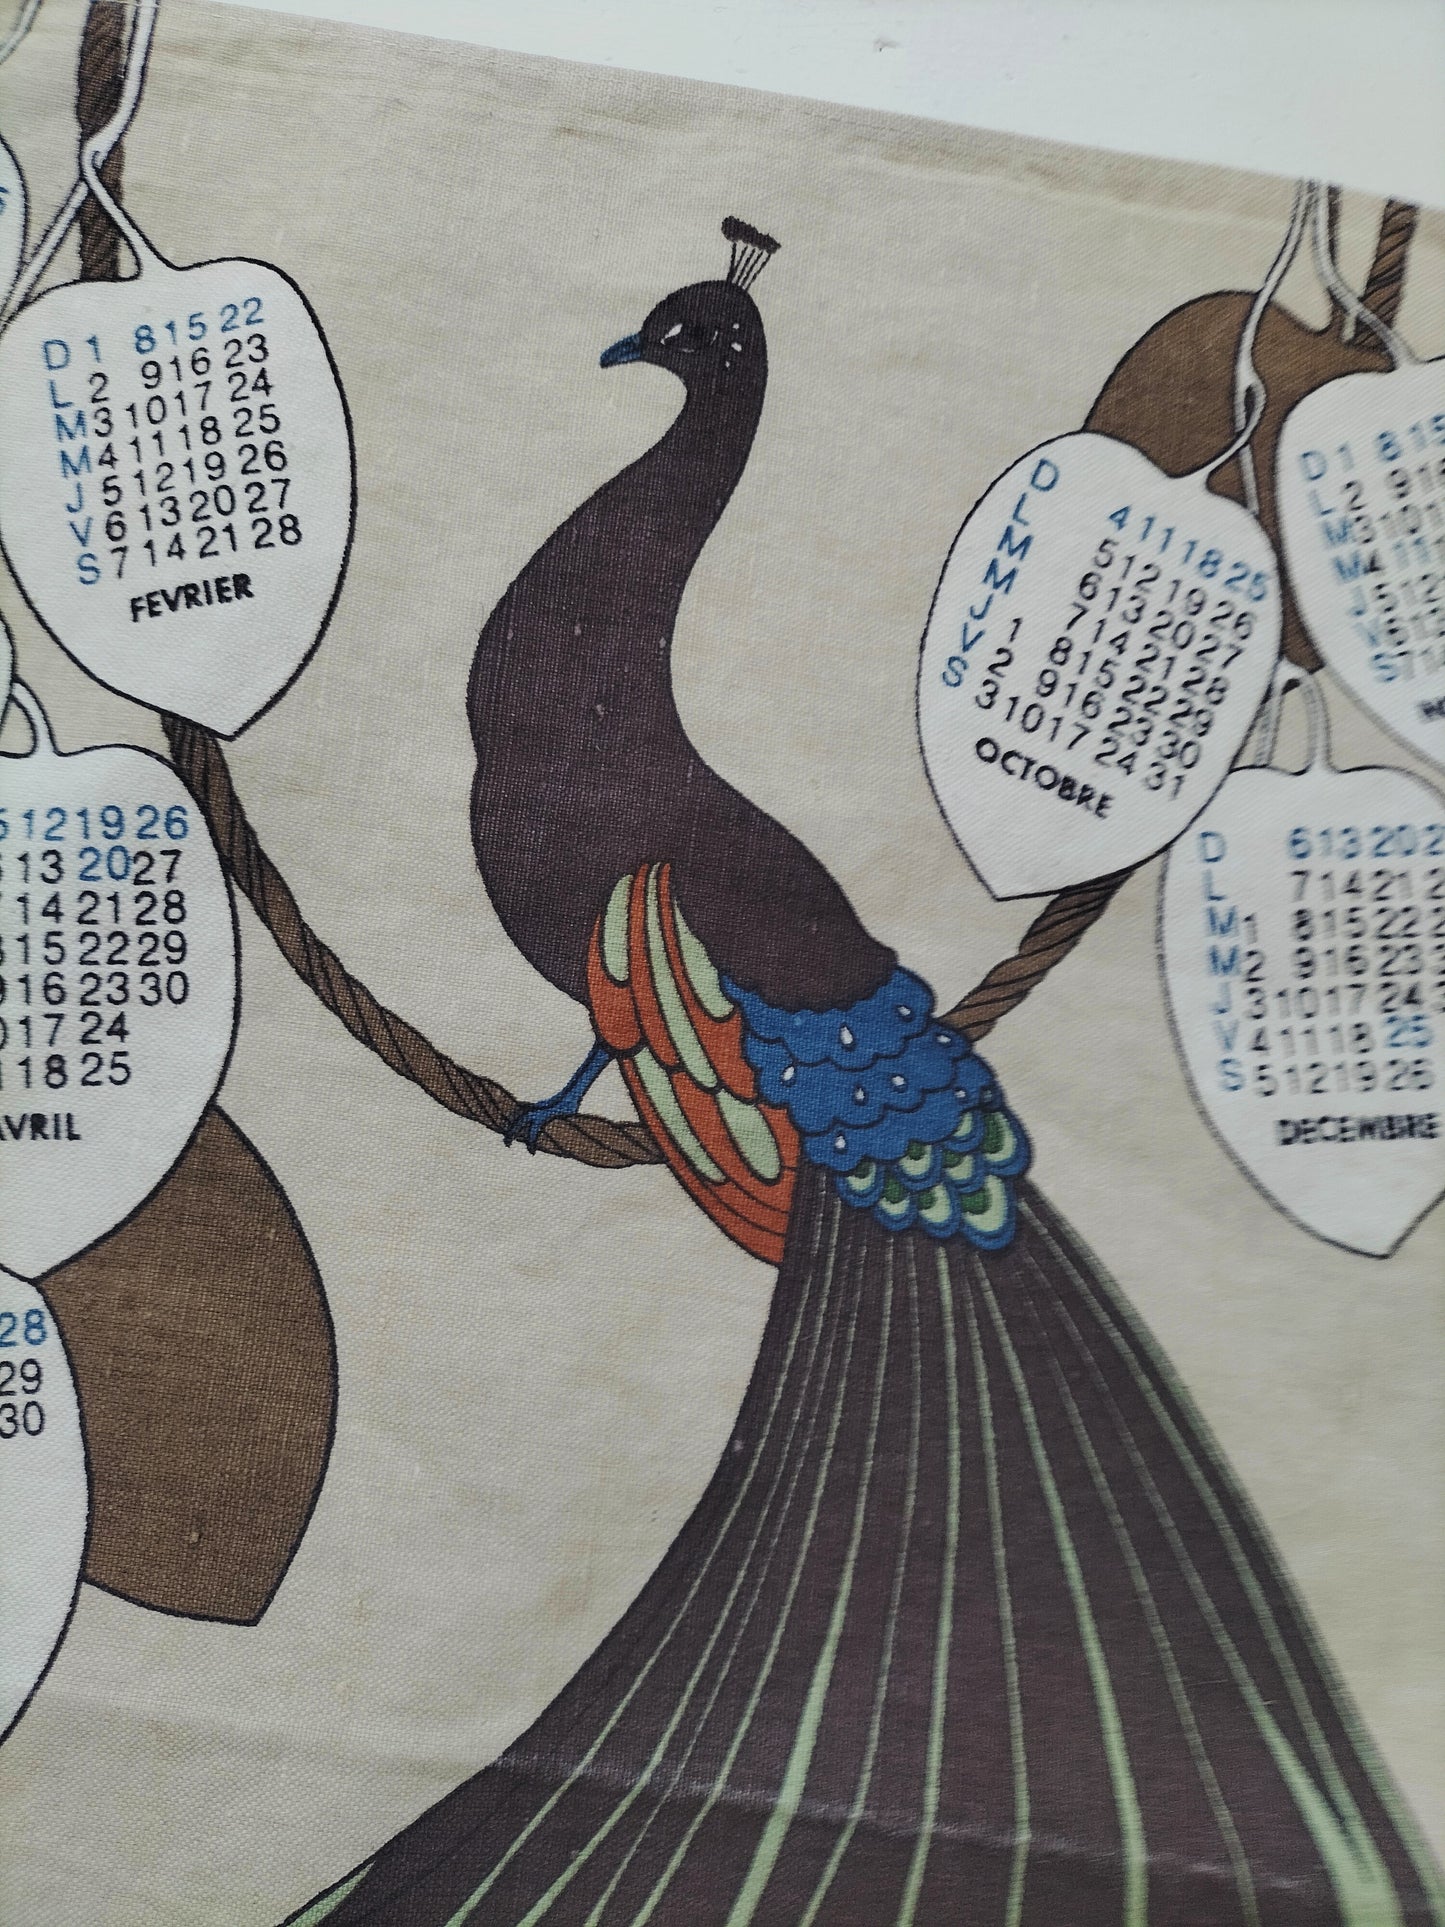 D 1 8 15 22
L 2 9 16 23
M 3 10 17 24
M 4 11 18 25
J 5 12 19 26
V 6 13 20 27
S 7 14 21 28
FEVRIER
12 19 26
13 20 27
14 21 28
15 22 29
16 23 30
17 24
18 25
AVRIL
28
29
30
D 4 11 18 25
L 5 12 19 26
M 6 13 20 27
M 7 14 21 28
J 1 8 15 22 29
V 2 9 16 23 30
S 3 10 17 24 31
OCTOBRE
D 1 8 15
L 2 9
M 3 10
M 4 11
J 5 12
V 6 13
S 7
D 6 13 20
L 7 14 21
M 1 8 15 22
M 2 9 16 23
J 3 10 17 24
V 4 11 18 25
S 5 12 19 26
DECEMBRE